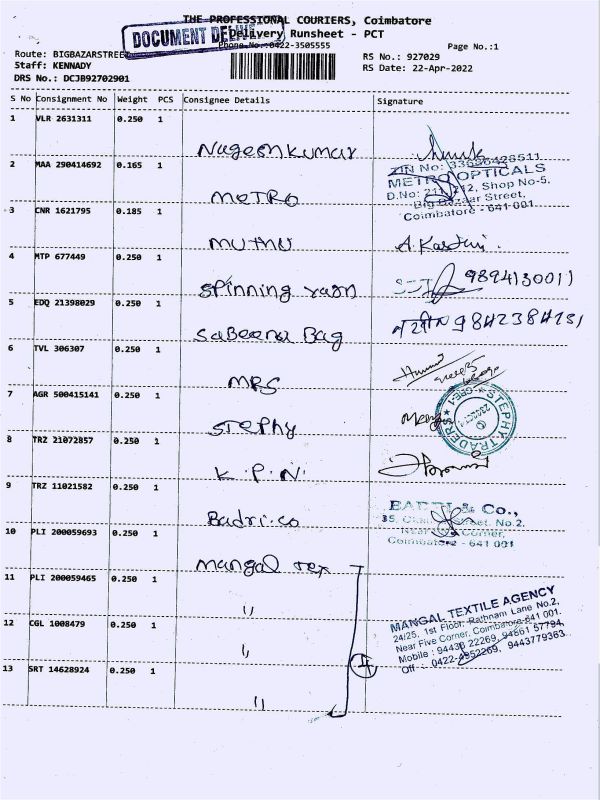 THE PROFESSIONAL COURIERS, Coimbatore
DOCUMENT DELIVE
Delivery Runsheet - PCT
Phone No.:0422-3505555
Page No.:1
Route: BIGBAZARSTREET
RS No.: 927029
Staff: KENNADY
RS Date: 22-Apr-2022
DRS No.: DCJB92702901
S No Consignment No Weight PCS Consignee Details Signature
1 VLR 2631311 0.250 1
Nageshkumar
ZIN No: 33
2 MAA 290414692 0.165 1
METRO OPTICALS
D.No: 212, Shop No-5,
Big Bazaar Street,
Coimbatore - 641 001.
METRO
3 CNR 1621795 0.185 1
MUTHU A. Kasthuri.
4 MTP 677449 0.250 1
Spinning yarn 9894130011
5 EDQ 21398029 0.250 1
Sabeena Bag 9842384251
6 TVL 306307 0.250 1
MRS
7 AGR 500415141 0.250 1
STEPHY TRADERS
Stephy
8 TRZ 21072857 0.250 1
K.P.N.
9 TRZ 11021582 0.250 1
BADRI & Co.,
35, Street. No.2,
Near Corner,
Coimbatore - 641 001
Badri.co
10 PLI 200059693 0.250 1
Mangal Tex
11 PLI 200059465 0.250 1
"
MANGAL TEXTILE AGENCY
24/25, 1st Floor, Rathnam Lane No.2,
Near Five Corner, Coimbatore-641 001.
Mobile : 94430 22269, 94861 57794,
Off : 0422-4352269, 9443779363.
12 CGL 1008479 0.250 1
"
4
13 SRT 14628924 0.250 1
"